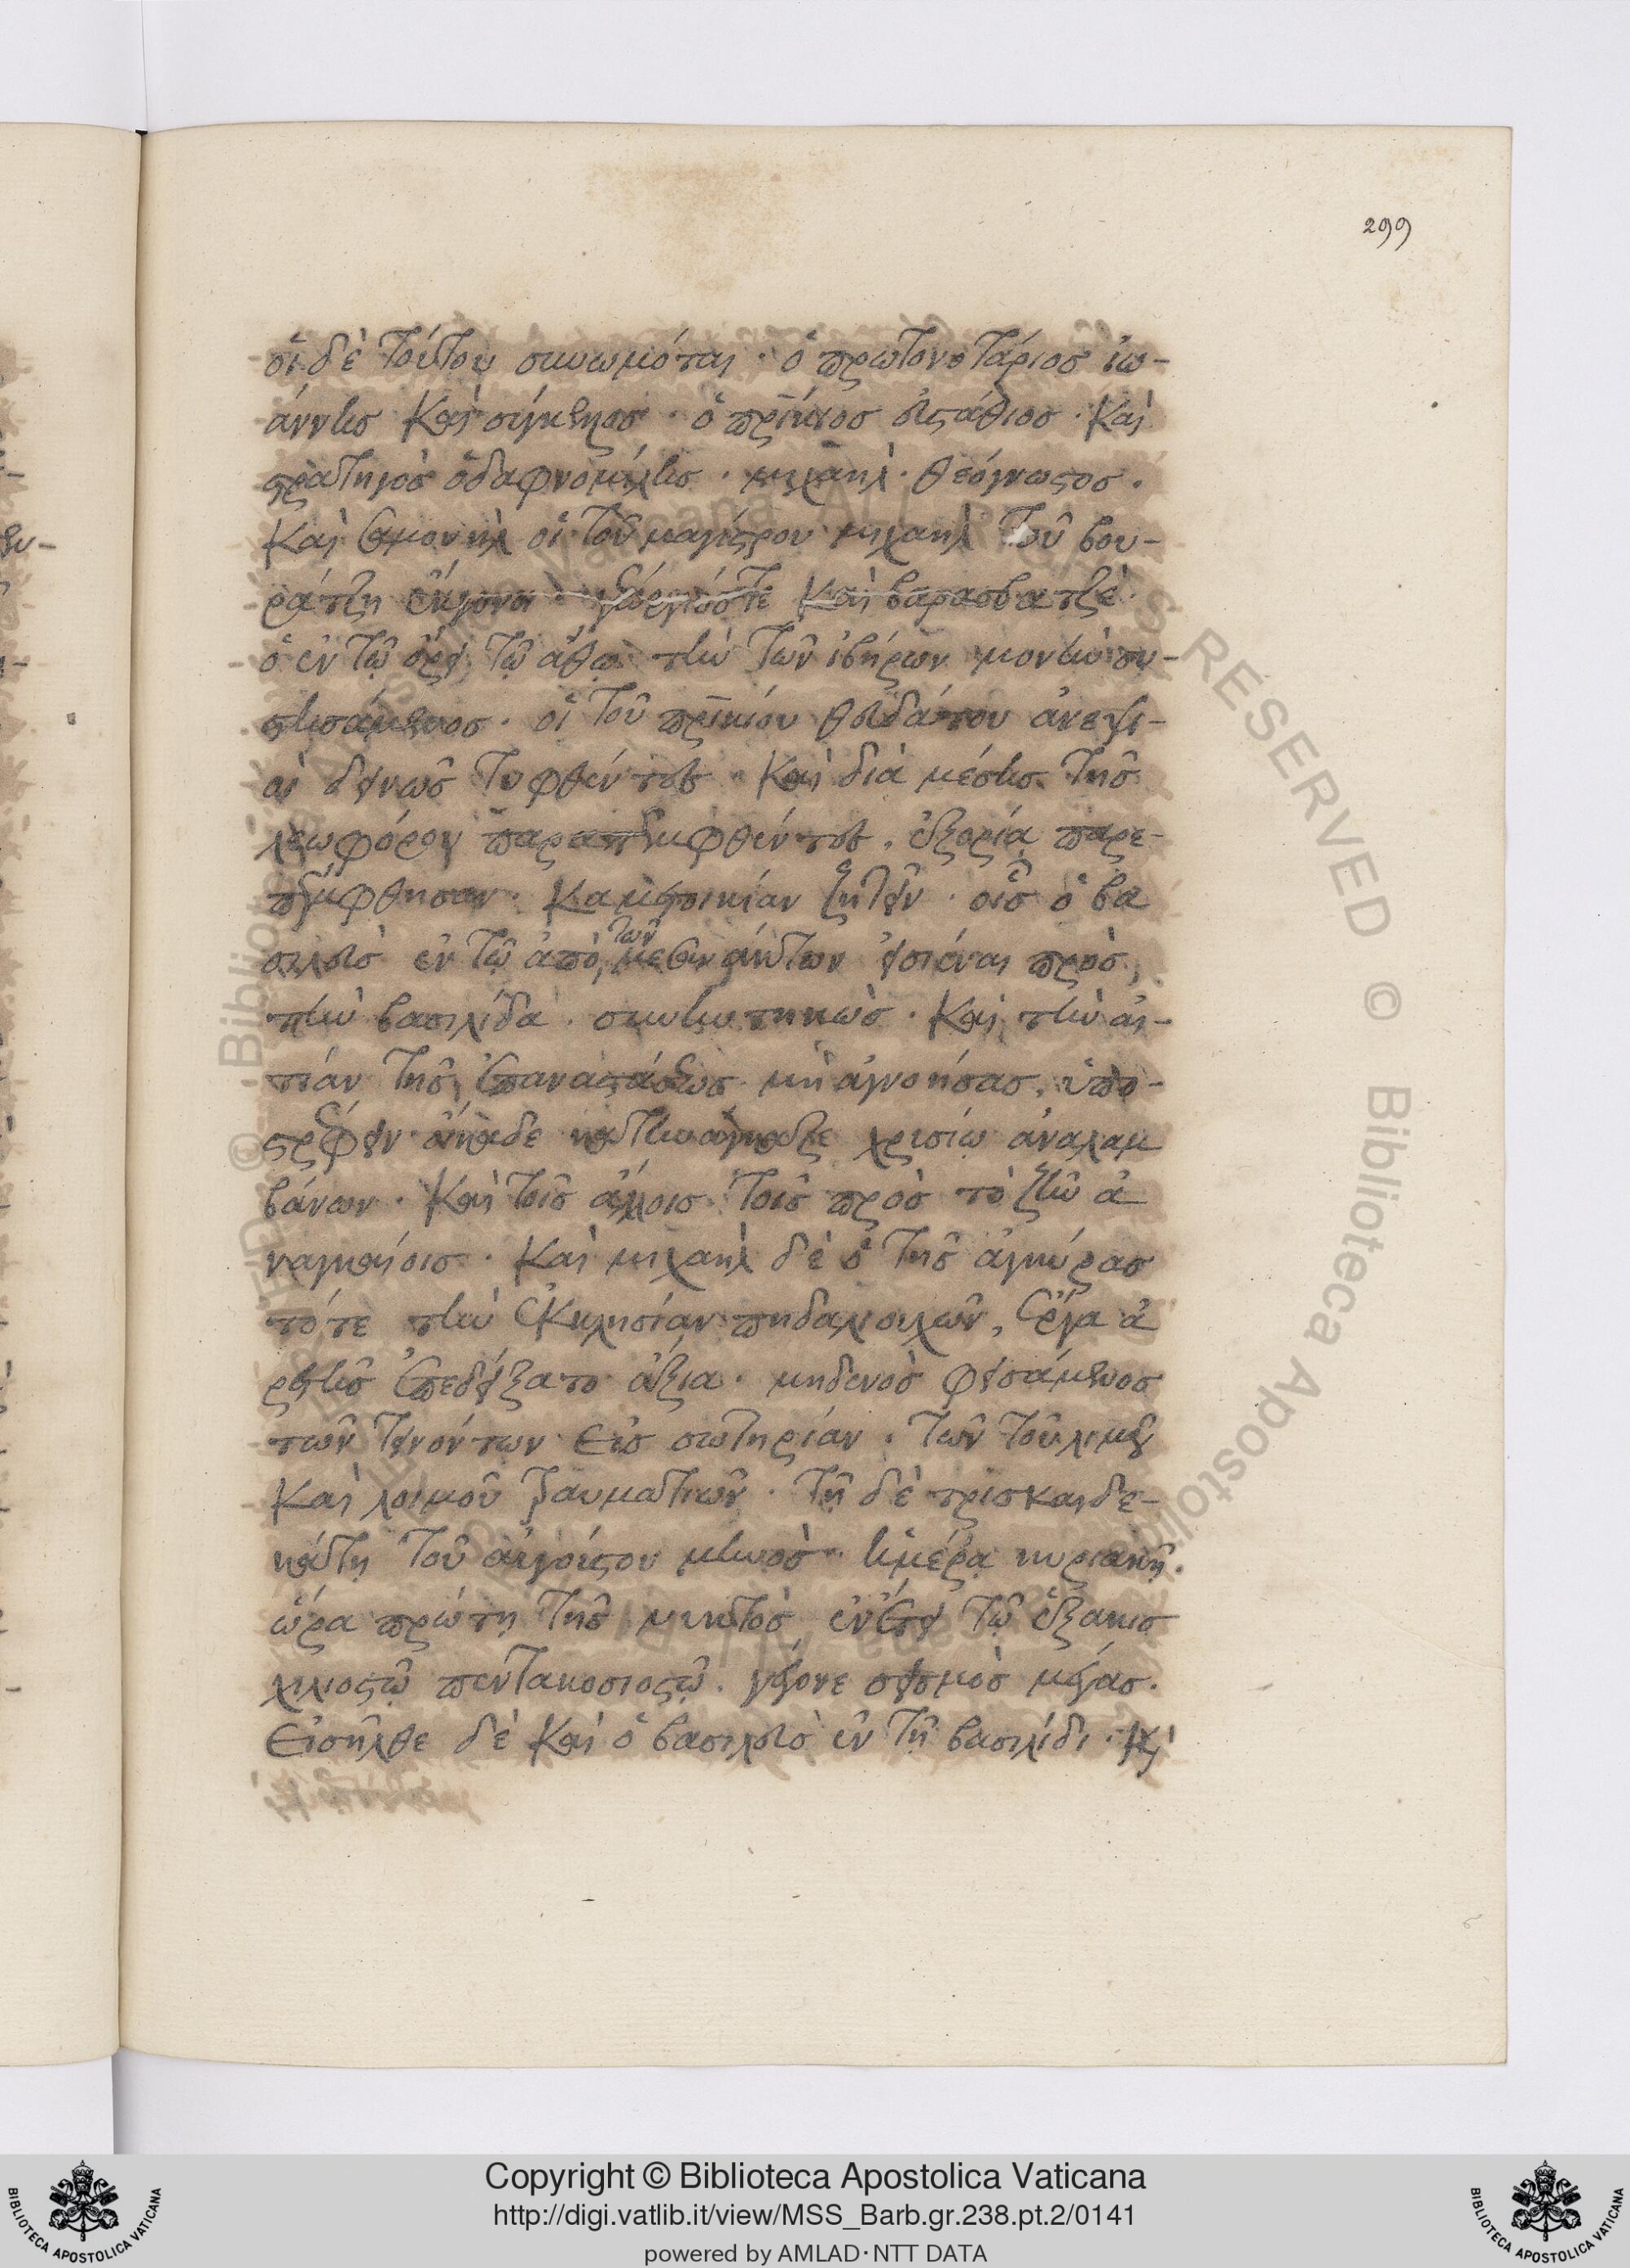 299
οἱ δὲ τούτου συνωμόται · ὁ πρωτονοτάριος ἰω-
άννης καὶ σύγκελλος · ὁ πρίκιος εὐστάθιος · καὶ
στρατηγὸς ὁ δαφνομήλης · μιχαὴλ · θεόγνωστος ·
καὶ σαμουὴλ οἱ τοῦ μαγίστρου μιχαὴλ τοῦ βου-
ράτζη ἔκγονοι · γεώργιός τε καὶ βαρασβατζὲ ·
ὁ ἐν τῷ ὄρει τῷ ἄθω τὴν τῶν ἰβήρων μονὴν συ-
στησάμενος · οἱ τοῦ πρικίου θευδάτου ἀνεψι-
οὶ δεινῶς τυφθέντες · καὶ διὰ μέσης τῆς
λεωφόρου παραπεμφθέντες, ἐξορίᾳ παρε-
πέμφθησαν ·
σιλεὺς ἐν τῷ ἀπὸ τῶν μεσανάκτων εἰσιέναι πρὸς
τὴν βασιλίδα · καὶ τὴν αἰ-
τίαν τῆς ἐπαναστάσεως μὴ ἀγνοήσας, ὑπο-
στρέφειν οἴκαδε κατηνάγκαζε χρυσίῳ ἀναλαμ
βάνων · καὶ τοῖς ἄλλοις τοῖς πρὸς τὸ ζῆν ἀ
ναγκαίοις · καὶ μιχαὴλ δὲ ὁ τῆς ἀγκύρας
τότε τὴν ἐκκλησίαν πηδαλιουχῶν, ἔργα ἀ
ρετῆς ἐπεδείξατο ἄξια · μηδενὸς φεισάμενος
τῶν τεινόντων εἰς σωτηρίαν · τῶν τοῦ λιμοῦ
καὶ λοιμοῦ τραυματιῶν · τῇ δὲ τρισκαιδε-
κάτῃ τοῦ αὐγούστου μηνὸς ἡμέρᾳ κυριακῇ ·
ὥρα πρώτη τῆς νυκτὸς ἐν ἔτει τῷ ἑξακισ
χιλιοστῷ πεντακοσιοστῷ · γέγονε σεισμὸς μέγας ·
Εἰσῆλθε δὲ καὶ ὁ βασιλεὺς ἐν τῇ βασιλίδι · κὶ
Copyright © Biblioteca Apostolica Vaticana
http://digi.vatlib.it/view/MSS_Barb.gr.238.pt.2/0141
powered by AMLAD·NTT DATA